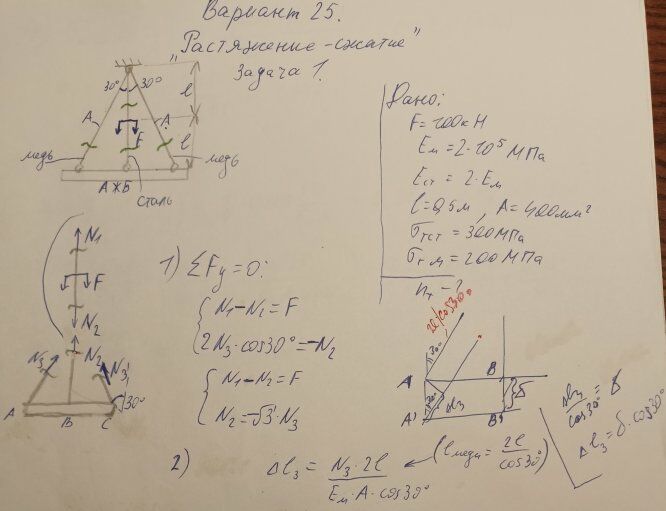 Вариант 25.
"Растяжение-сжатие"
Задача 1.
30° 30°
l
A A
F
l
медь медь
АЖБ
сталь
Дано:
F=200кН
Eм=2·10⁵ МПа
Eст = 2·Eм
l=0,5м, A=400мм²
σтст=300МПа
σт м=200МПа
nт - ?
N₁
F
N₂
N₂
N₃ N₃'
30°
A B C
1) ΣFy=0:
{ N₁-N₂=F
2N₃·cos30°=-N₂
{ N₁-N₂=F
N₂=-√3·N₃
2l/cos30°
30°
A B
30° Δl₃ δ
A' B'
Δl₃/cos30° = δ
Δl₃=δ·cos30°
2) Δl₃ = N₃·2l/Eм·A·cos30° ← (lмеди = 2l/cos30°)